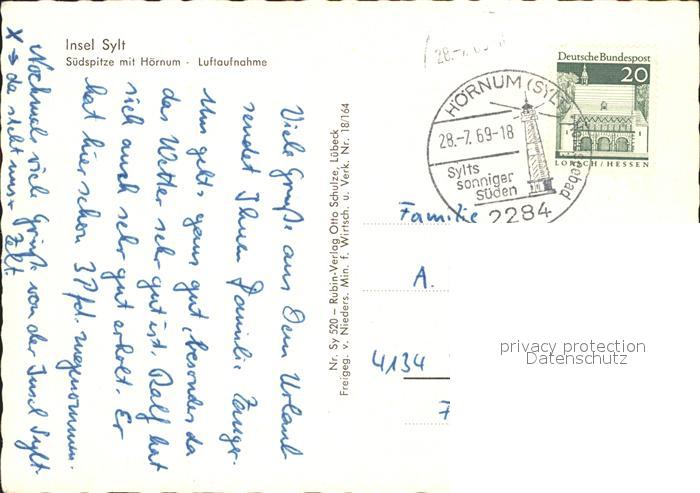 Insel Sylt
Südspitze mit Hörnum · Luftaufnahme
Viele Grüße aus dem Urlaub
sendet Ihnen Familie
Uns geht's ganz gut, besonders da
das Wetter sehr gut ist. Ralf hat
sich auch sehr gut erholt. Er
hat hier schon 3 Pfd. zugenommen.
Nochmals viele Grüße von der Insel Sylt.
X → da steht unser
Zelt.
Nr. Sy 520 – Rubin-Verlag Otto Schulze, Lübeck
Freigeg. v. Nieders. Min. f. Wirtsch. u. Verk. Nr. 18/164
28.-7.69-18
HÖRNUM (SYLT)
28.-7.69-18
Sylts
sonniger
Süden
2284
Deutsche Bundespost
20
LORSCH/HESSEN
Familie
A.
4134
privacy protection
Datenschutz